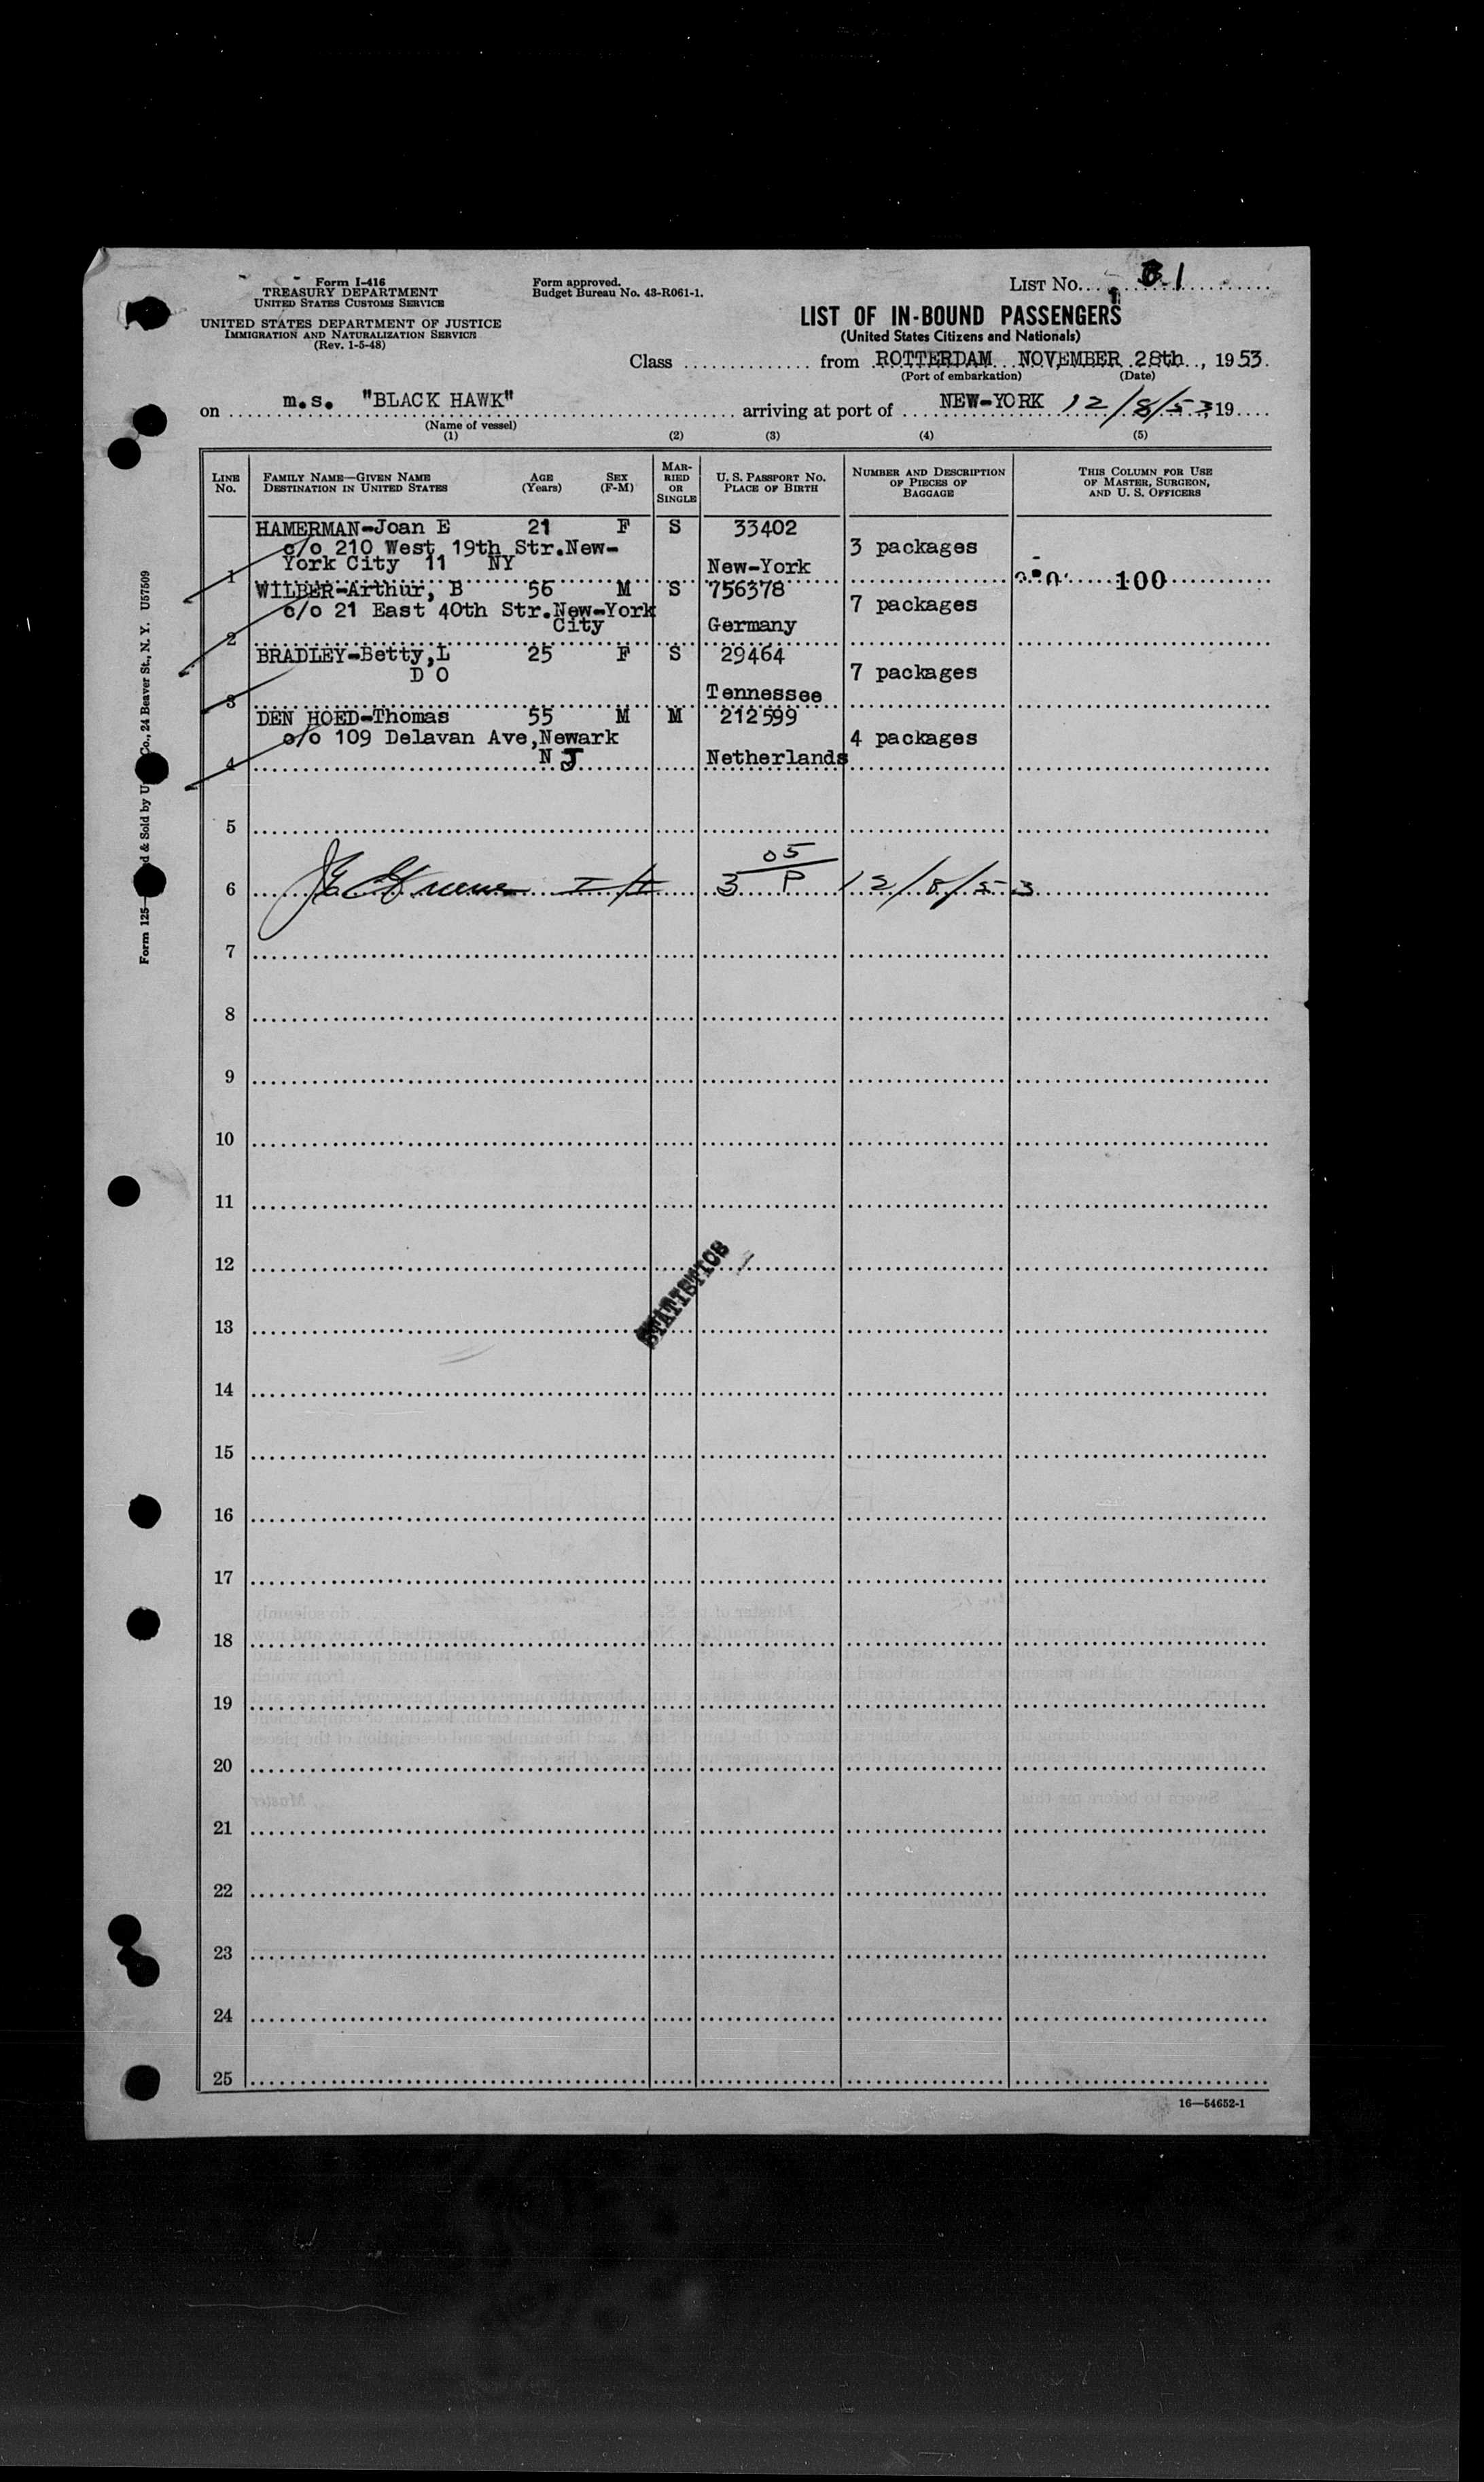 Form I-416
TREASURY DEPARTMENT
UNITED STATES CUSTOMS SERVICE
UNITED STATES DEPARTMENT OF JUSTICE
IMMIGRATION AND NATURALIZATION SERVICE
(Rev. 1-5-48)
Form approved.
Budget Bureau No. 43-R061-1.
LIST No. 1
LIST OF IN-BOUND PASSENGERS
(United States Citizens and Nationals)
Class from ROTTERDAM NOVEMBER 28th, 1953.
(Port of embarkation) (Date)
on m.s. "BLACK HAWK" arriving at port of NEW-YORK 12/8/53 19
(Name of vessel)
(1) (2) (3) (4) (5)
LINE No. FAMILY NAME—GIVEN NAME DESTINATION IN UNITED STATES AGE (Years) SEX (F-M) MARRIED OR SINGLE U. S. PASSPORT No. PLACE OF BIRTH NUMBER AND DESCRIPTION OF PIECES OF BAGGAGE THIS COLUMN FOR USE OF MASTER, SURGEON, AND U. S. OFFICERS
HAMERMAN-Joan E 21 F S 33402
c/o 210 West 19th Str.New- 3 packages
York City 11 NY New-York
1 100
WILBER-Arthur, B 56 M S 756378
c/o 21 East 40th Str.New-York 7 packages
City Germany
2
BRADLEY-Betty,L 25 F S 29464
D O 7 packages
Tennessee
3
DEN HOED-Thomas 55 M M 212599
c/o 109 Delavan Ave,Newark 4 packages
N J Netherlands
4
5
6 3 05 P 12/8/53
7
8
9
10
11
12
STATISTICS
13
14
15
16
17
18
19
20
21
22
23
24
25
16—54652-1
Form 125— d & Sold by U Co., 24 Beaver St., N. Y. U57509